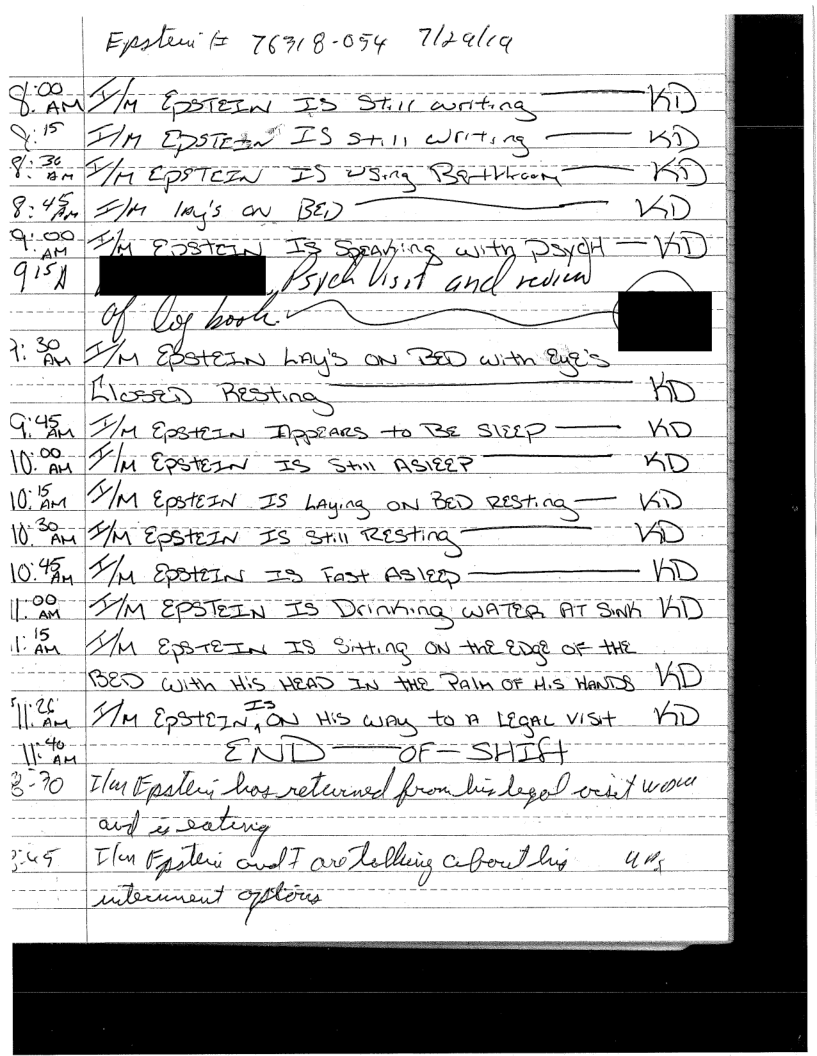 Epstein # 76318-054 7/29/19
8:00 AM I/M EPSTEIN IS Still writing KD
8:15 I/M EPSTEIN IS Still writing KD
8:30 AM I/M EPSTEIN IS using Bathroom KD
8:45 AM I/M lay's on BED KD
9:00 AM I/M EPSTEIN IS Speaking with PSYCH KD
9 15 A , Psych Visit and review
of log book.
9:30 AM I/M EPSTEIN LAY'S ON BED with Eye's
Closed Resting KD
9:45 AM I/M EPSTEIN Appears to BE SlEEP KD
10:00 AM I/M EPSTEIN IS Still ASlEEP KD
10:15 AM I/M EPSTEIN IS LAying ON BED RESting KD
10:30 AM I/M EPSTEIN IS Still RESting KD
10:45 AM I/M EPSTEIN IS FAST ASlEEP KD
11:00 AM I/M EPSTEIN IS Drinking WATER AT SINK KD
11:15 AM I/M EPSTEIN IS Sitting ON the EDgE OF the
BED with His HEAD IN the PAlm OF His HANDS KD
11:26 AM I/M EPSTEIN IS ON His WAY to A LEgAl VISIt KD
11:40 AM END OF SHIFT
I/m Epstein has returned from his legal visit
and is eating
I/m Epstein and I are talking about his
internment options